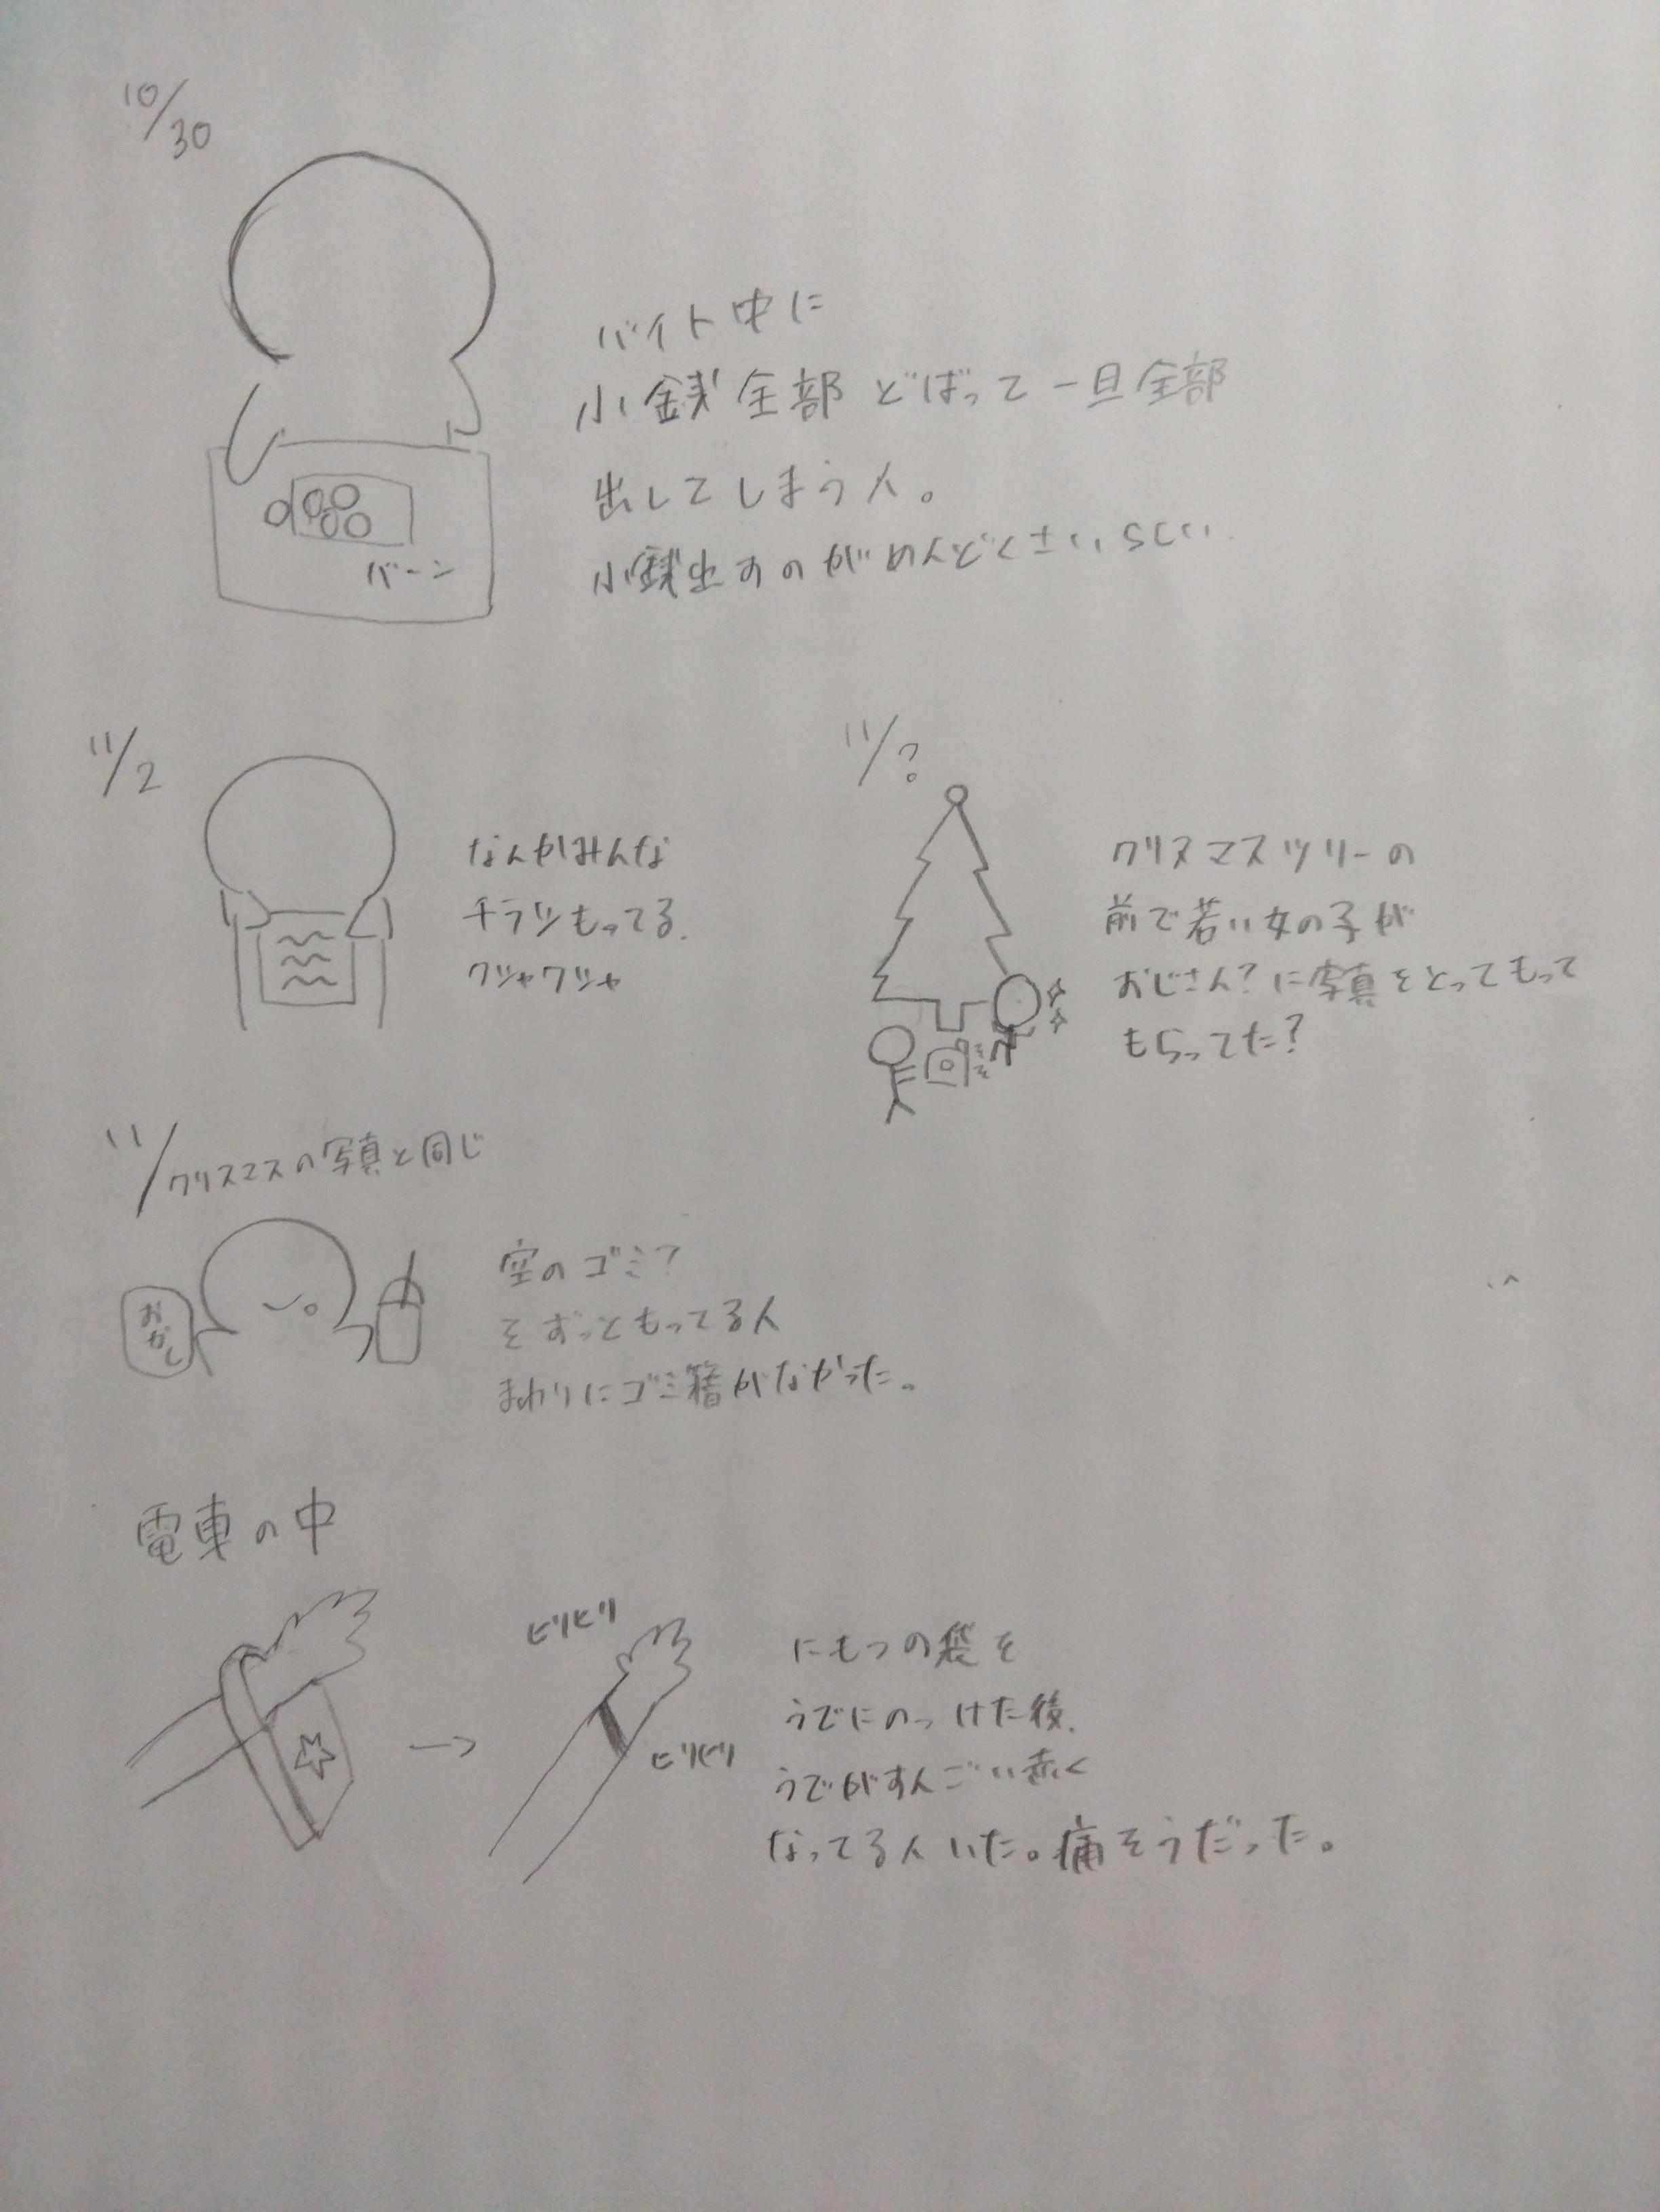 10/30
バイト中に
小銭全部どばって一旦全部
出してしまう人。
小銭出すのがめんどくさいらしい
バーン
11/2
なんかみんな
チラシもってる.
クシャクシャ
11/?
クリスマスツリーの
前で若い女の子が
おじさん?に写真をとってもって
もらってた?
11/クリスマスの写真と同じ
おかし
空のゴミ?
をずっともってる人
まわりにゴミ箱がなかった。
電車の中
ビリビリ
ビリビリ
にもつの袋を
うでにのっけた後.
うでがすんごい赤く
なってる人いた。痛そうだった。